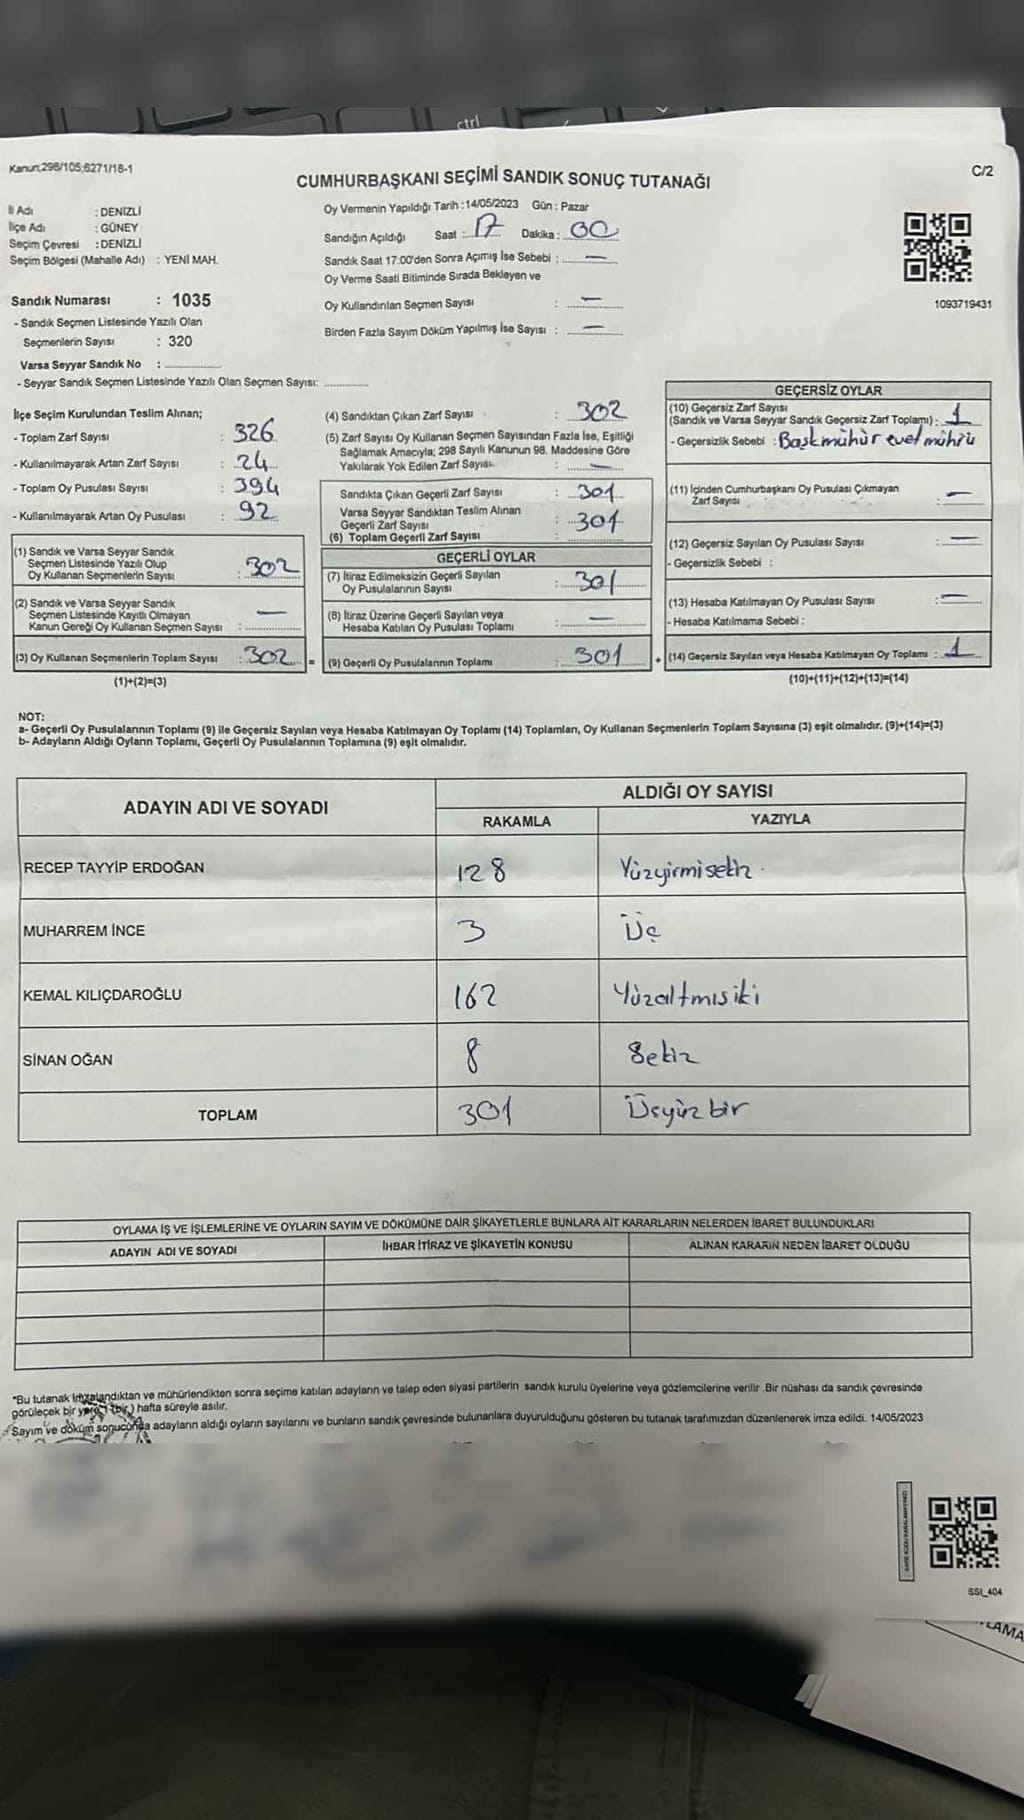 ctrl
Kanun;298/105;6271/18-1
CUMHURBAŞKANI SEÇİMİ SANDIK SONUÇ TUTANAĞI
C/2
İl Adı : DENİZLİ
İlçe Adı : GÜNEY
Seçim Çevresi : DENİZLİ
Seçim Bölgesi (Mahalle Adı) : YENİ MAH.
Sandık Numarası : 1035
- Sandık Seçmen Listesinde Yazılı Olan
Seçmenlerin Sayısı : 320
Varsa Seyyar Sandık No :
- Seyyar Sandık Seçmen Listesinde Yazılı Olan Seçmen Sayısı:
Oy Vermenin Yapıldığı Tarih :14/05/2023 Gün : Pazar
Sandığın Açıldığı Saat : 17 Dakika : 00
Sandık Saat 17:00'den Sonra Açımış İse Sebebi : —
Oy Verme Saati Bitiminde Sırada Bekleyen ve
Oy Kullandırılan Seçmen Sayısı : —
Birden Fazla Sayım Döküm Yapılmış İse Sayısı : —
1093719431
İlçe Seçim Kurulundan Teslim Alınan;
- Toplam Zarf Sayısı : 326
- Kullanılmayarak Artan Zarf Sayısı : 24
- Toplam Oy Pusulası Sayısı : 394
- Kullanılmayarak Artan Oy Pusulası : 92
(1) Sandık ve Varsa Seyyar Sandık
Seçmen Listesinde Yazılı Olup
Oy Kullanan Seçmenlerin Sayısı : 302
(2) Sandık ve Varsa Seyyar Sandık
Seçmen Listesinde Kayıtlı Olmayan
Kanun Gereği Oy Kullanan Seçmen Sayısı : —
(3) Oy Kullanan Seçmenlerin Toplam Sayısı : 302 =
(1)+(2)=(3)
(4) Sandıktan Çıkan Zarf Sayısı : 302
(5) Zarf Sayısı Oy Kullanan Seçmen Sayısından Fazla İse, Eşitliği
Sağlamak Amacıyla; 298 Sayılı Kanunun 98. Maddesine Göre
Yakılarak Yok Edilen Zarf Sayısı : —
Sandıkta Çıkan Geçerli Zarf Sayısı : 301
Varsa Seyyar Sandıktan Teslim Alınan
Geçerli Zarf Sayısı : 301
(6) Toplam Geçerli Zarf Sayısı
GEÇERLİ OYLAR
(7) İtiraz Edilmeksizin Geçerli Sayılan
Oy Pusulalarının Sayısı : 301
(8) İtiraz Üzerine Geçerli Sayılan veya
Hesaba Katılan Oy Pusulası Toplamı : —
(9) Geçerli Oy Pusulalarının Toplamı 301 +
GEÇERSİZ OYLAR
(10) Geçersiz Zarf Sayısı
(Sandık ve Varsa Seyyar Sandık Geçersiz Zarf Toplamı) : 1
- Geçersizlik Sebebi : Başkmühür evet mührü
(11) İçinden Cumhurbaşkanı Oy Pusulası Çıkmayan
Zarf Sayısı : —
(12) Geçersiz Sayılan Oy Pusulası Sayısı : —
- Geçersizlik Sebebi :
(13) Hesaba Katılmayan Oy Pusulası Sayısı : —
- Hesaba Katılmama Sebebi :
(14) Geçersiz Sayılan veya Hesaba Katılmayan Oy Toplamı : 1
(10)+(11)+(12)+(13)=(14)
NOT:
a- Geçerli Oy Pusulalarının Toplamı (9) ile Geçersiz Sayılan veya Hesaba Katılmayan Oy Toplamı (14) Toplamları, Oy Kullanan Seçmenlerin Toplam Sayısına (3) eşit olmalıdır. (9)+(14)=(3)
b- Adayların Aldığı Oyların Toplamı, Geçerli Oy Pusulalarının Toplamına (9) eşit olmalıdır.
ADAYIN ADI VE SOYADI
ALDIĞI OY SAYISI
RAKAMLA YAZIYLA
RECEP TAYYİP ERDOĞAN 128 Yüzyirmisekiz
MUHARREM İNCE 3 Üç
KEMAL KILIÇDAROĞLU 162 Yüzaltmışiki
SİNAN OĞAN 8 Sekiz
TOPLAM 301 Üçyüzbir
OYLAMA İŞ VE İŞLEMLERİNE VE OYLARIN SAYIM VE DÖKÜMÜNE DAİR ŞİKAYETLERLE BUNLARA AİT KARARLARIN NELERDEN İBARET BULUNDUKLARI
ADAYIN ADI VE SOYADI İHBAR İTİRAZ VE ŞİKAYETİN KONUSU ALINAN KARARIN NEDEN İBARET OLDUĞU
*Bu tutanak imzalandıktan ve mühürlendikten sonra seçime katılan adayların ve talep eden siyasi partilerin sandık kurulu üyelerine veya gözlemcilerine verilir .Bir nüshası da sandık çevresinde
görüleçek bir yere 1 (bir ) hafta süreyle asılır.
Sayım ve döküm sonucunda adayların aldığı oyların sayılarını ve bunların sandık çevresinde bulunanlara duyurulduğunu gösteren bu tutanak tarafımızdan düzenlenerek imza edildi. 14/05/2023
SSI_404
LAMA